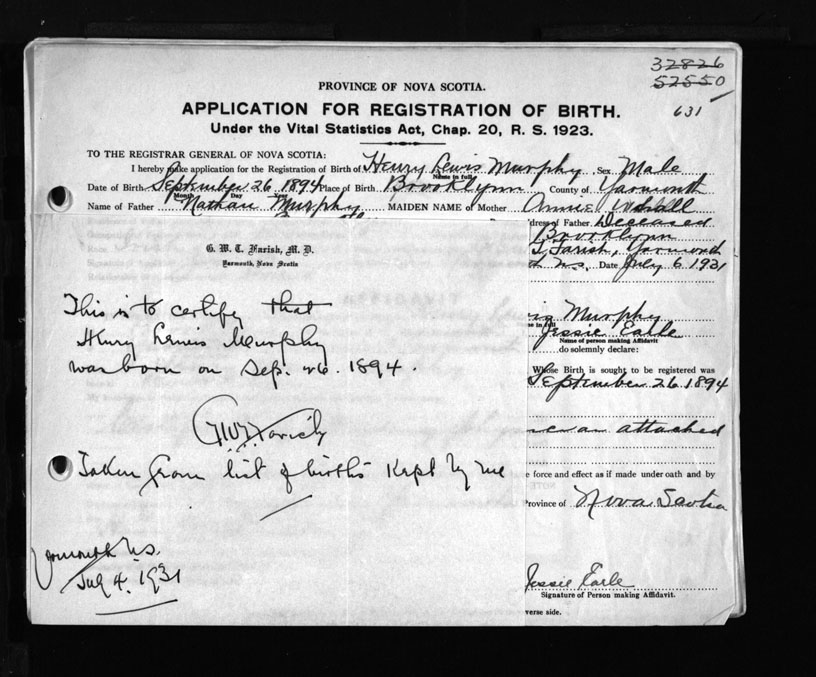 32826
52550
631
PROVINCE OF NOVA SCOTIA.
APPLICATION FOR REGISTRATION OF BIRTH.
Under the Vital Statistics Act, Chap. 20, R. S. 1923.
TO THE REGISTRAR GENERAL OF NOVA SCOTIA:
I hereby make application for the Registration of Birth of Henry Lewis Murphy Sex Male
Name in full
Date of Birth September 26 1894 Place of Birth Brooklynn County of Yarmouth
Month Day Year
Name of Father Nathan Murphy MAIDEN NAME of Mother Annie
dress of Father Deceased
Brooklynn
Farish, Yarmouth
N.S. Date July 6 1931
G. W. T. Farish, M. D.
Yarmouth, Nova Scotia
This is to certify that
Henry Lewis Murphy
was born on Sep. 26. 1894.
GWTFarish
Taken from list of births Kept by me
Yarmouth N.S.
July 4. 1931
is Murphy
e in full
Jessie Earle
Name of person making Affidavit
do solemnly declare:
Whose Birth is sought to be registered was
September 26 1894
attached
e force and effect as if made under oath and by
rovince of Nova Scotia
Jessie Earle
Signature of Person making Affidavit.
verse side.